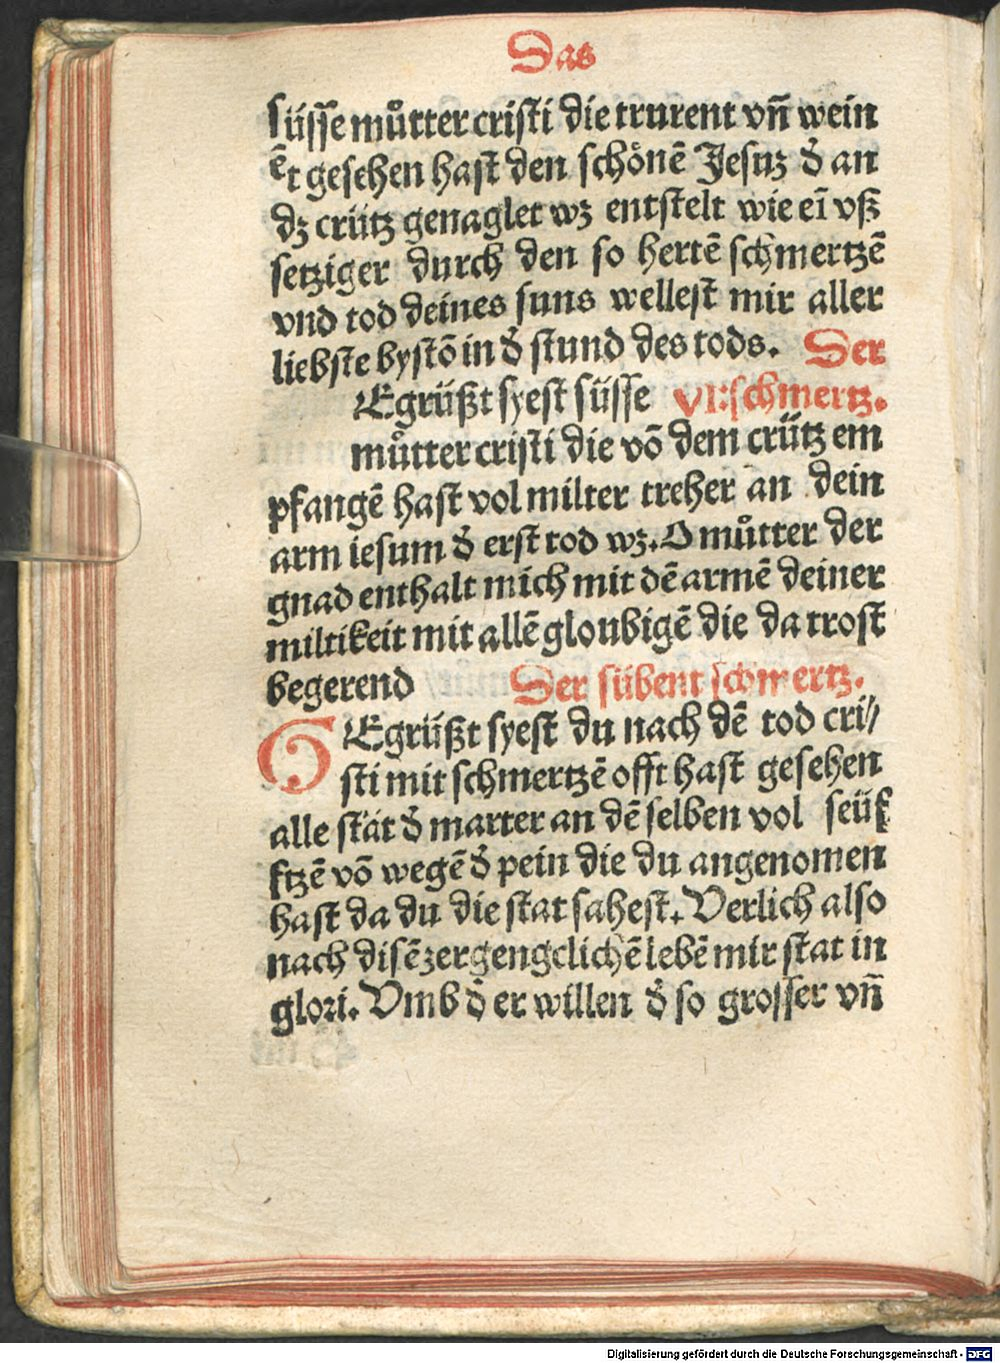 Das
süsse můtter cristi die trurent vñ wein
et gesehen hast den schönē Jesuz d̓ an
dz crütz genaglet wz entstelt wie eī vß
setziger durch den so hertē schmertzē
vnd tod deines suns wellest mir aller
liebste bystō in d̓ stund des tods. Der
Egrüßt syest süsse vi. schmertz.
můtter cristi die vō dem crütz em
pfangē hast vol milter treher an dein
arm iesum d̓ erst tod wz. O můtter der
gnad enthalt mich mit dē armē deiner
miltikeit mit allē gloubigē die da trost
begerend Der sübent schmertz.
GEgrüßt syest du nach dē tod cri//
sti mit schmertzē offt hast gesehen
alle stät d̓ marter an dē selben vol seüf
ftzē vō wegē d̓ pein die du angenomen
hast da du die stat sahest. Verlich also
nach disē zergengclichē lebē mir stat in
glori. Vmb d̓ er willen d̓ so grosser vñ
Digitalisierung gefördert durch die Deutsche Forschungsgemeinschaft - DFG